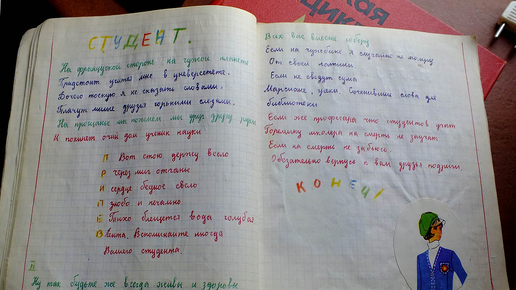 СТУДЕНТ.
На французской стороне на чужой планете
Предстоит учиться мне в университете.
До чего тоскую я не сказать словами.
Плачьте милые друзья горькими слезами.
На прощание мы пожмем мы друг другу руки
И покинет отчий дом ученик науки
П Вот стою держу весло
Р через миг отчалю
И сердце бедное свело
П скорбью и печалью
Е Тихо плещется вода голубая
В лента. Вспоминайте иногда
Вашего студента.
Ну так будьте же всегда живы и здоровы
Всех вас вместе соберу
Если на чужбине Я случайно не помру
От своей латыни
Если не сведут с ума
Римляне, греки. Сочинившие слова для
библиотеки
Если те профессора что студентов учат
Горемыку школяра на смерть не замучат
Если на смерть не
Обязательно вернусь к вам друзья подруги.
КОНЕЦ!